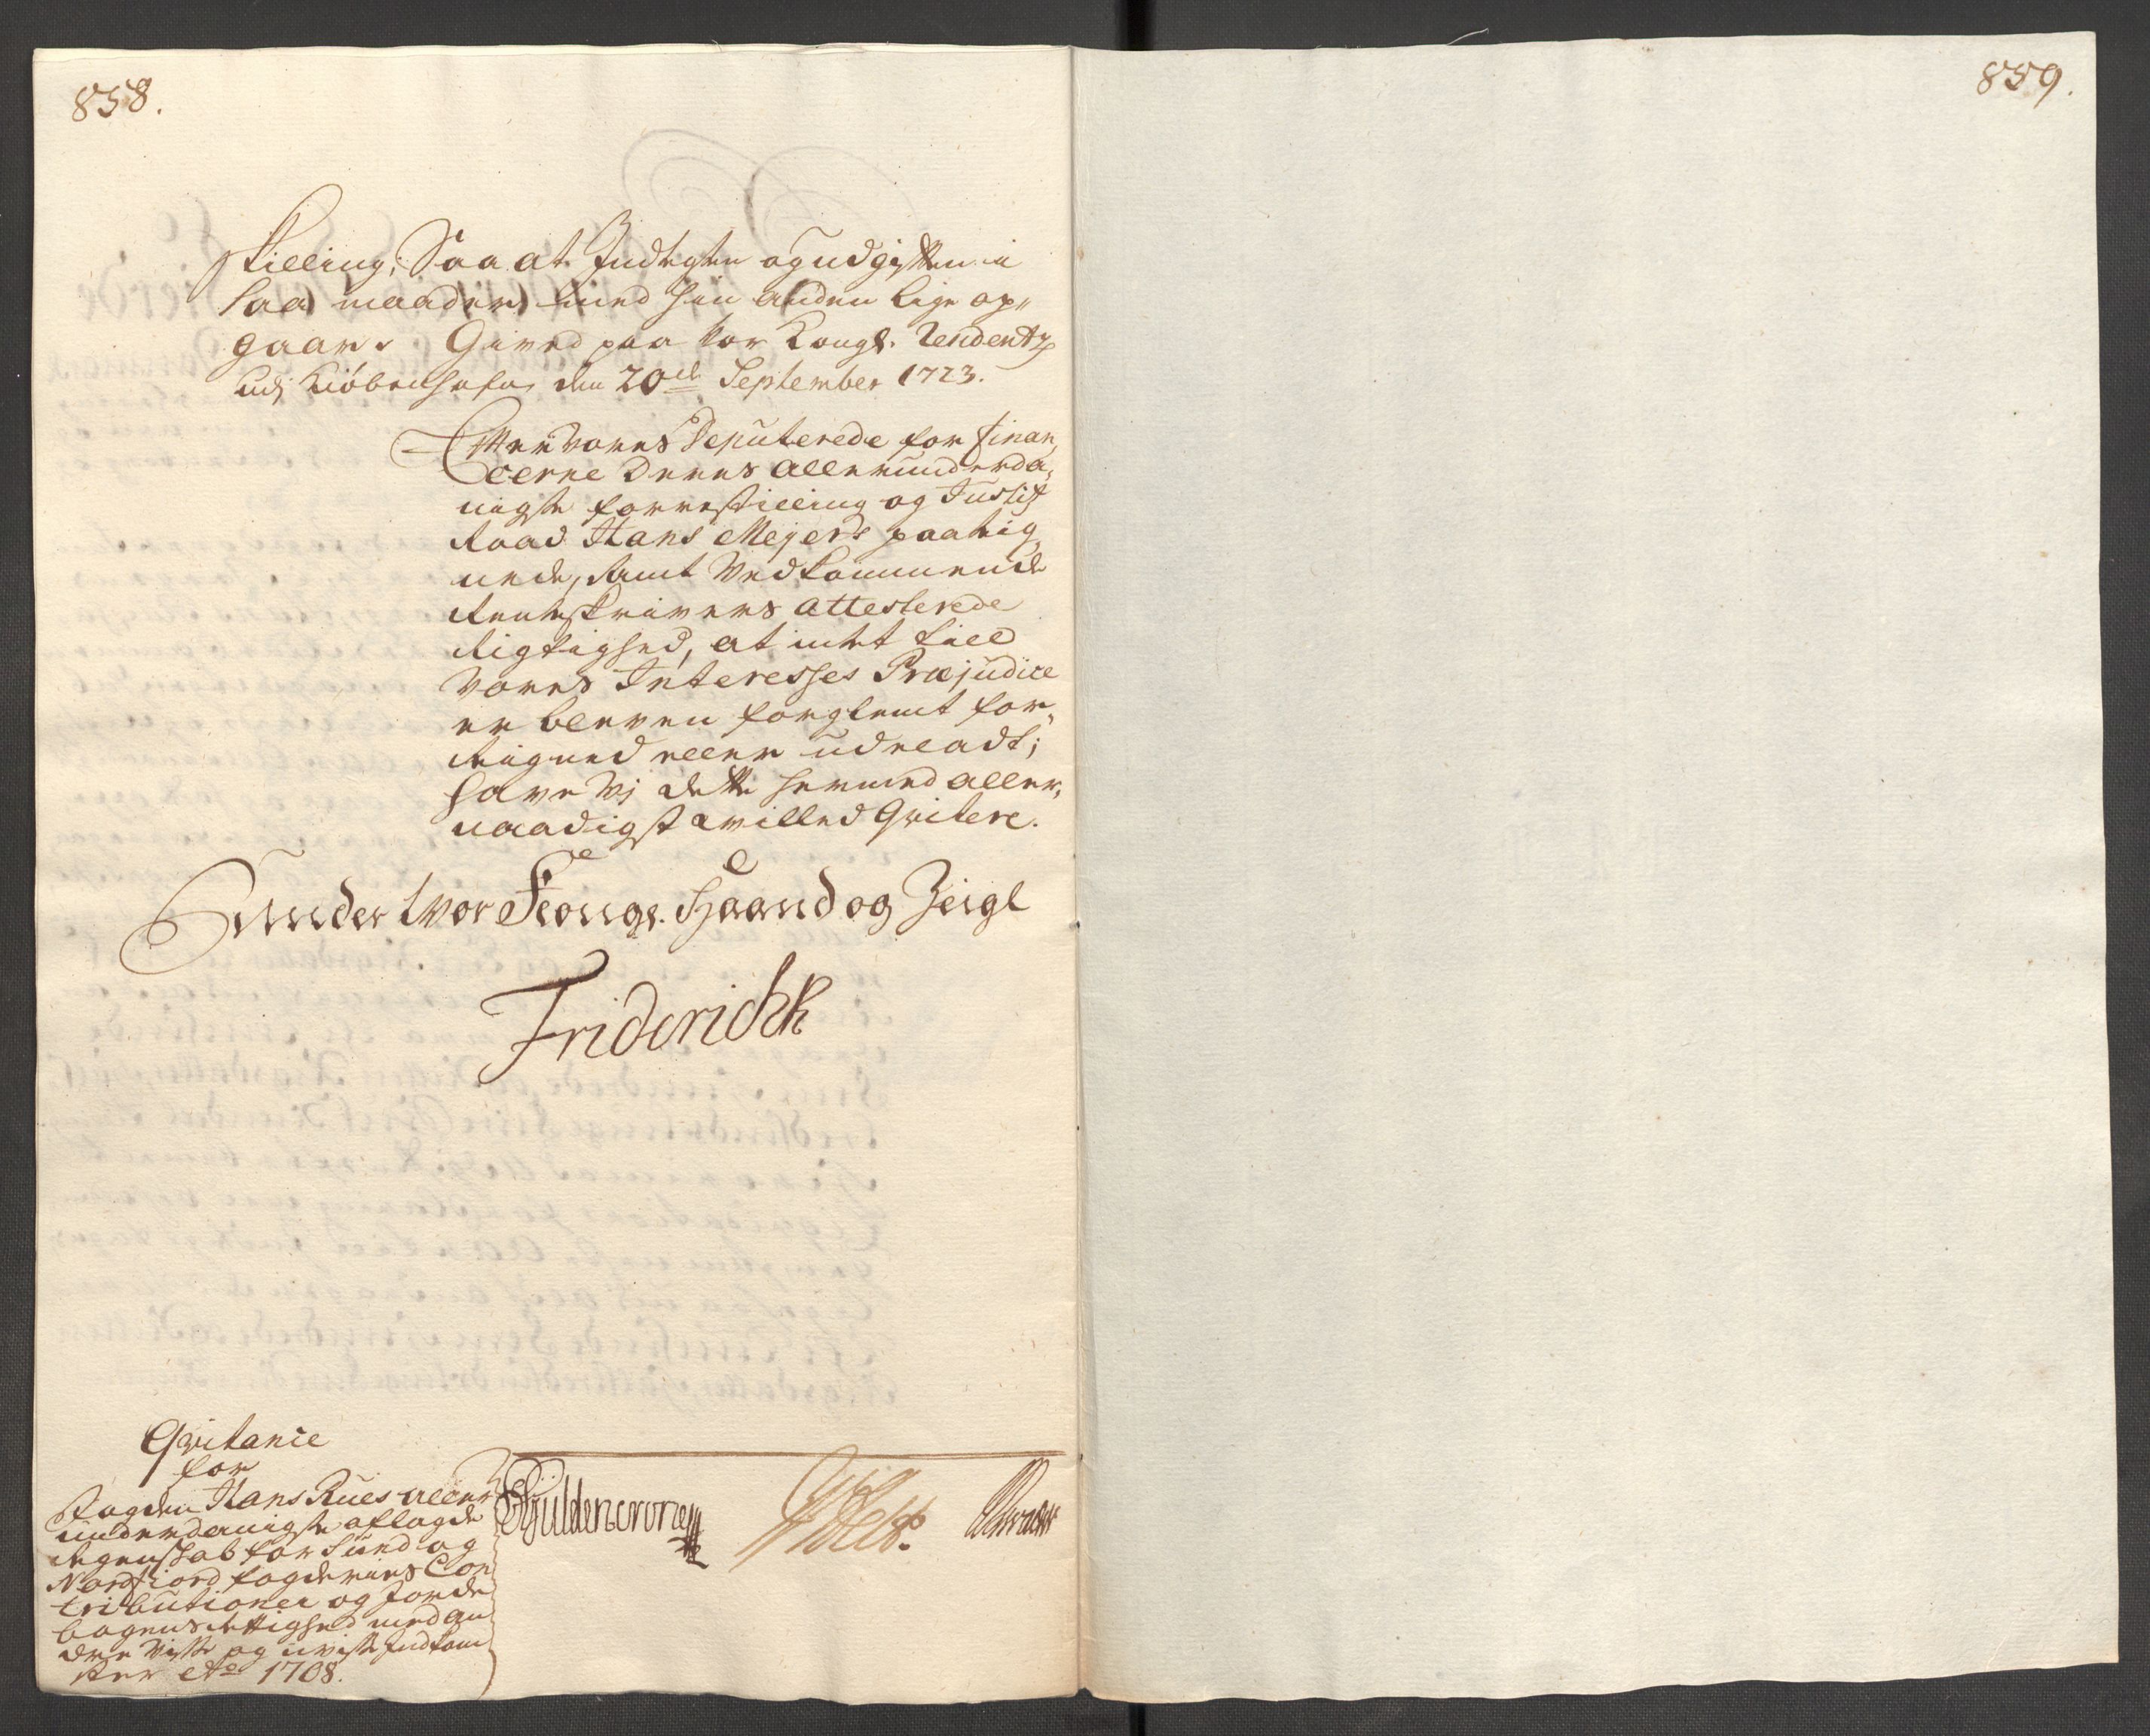 858.
skilling; Saa at Indtegten og udgiften i
saa maader med hin anden lige op-
gaar. Gived paa vor Kongl. Residentz
udj Kiøbenhafn den 20de September 1723.
Efter vores Deputerede for finan-
cerne deres allerunderda-
nigste forrestilling og Justitz
Raad Hans Meyers paateg-
nede, samt Vedkommende
Renteskrivers attesterede
Rigtighed, at intet till
vores Interesses Præjudice
er bleven forglemt for-
regned eller udeladt;
have Vj dette hermed aller-
naadigst villed Qvitere.
Under vor Kongl. Haand og Zeigl
Friderich R
Qvitanie
for
Fogden Hans Rues aller
underdanigste aflagde
Regenskab for Sund og
Nordfiord fogderiers Con
tributioner og Jorde
bogens Rettighed med an
dre visse og uvisse Indkom
ster Ao 1708.
Güldencrone
859.